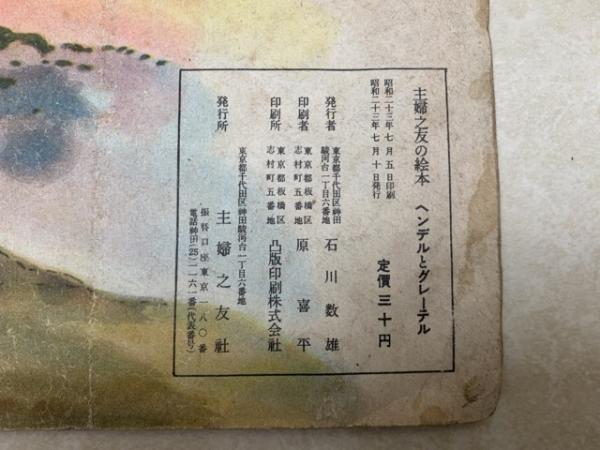 主婦之友の絵本　ヘンデルとグレーテル
定價三十円
昭和二十三年七月五日印刷
昭和二十三年七月十日発行
東京都千代田区神田
駿河台一丁目六番地
発行者　石川数雄
東京都板橋区
志村町五番地
印刷者　原喜平
東京都板橋区
志村町五番地
印刷所　凸版印刷株式会社
東京都千代田区神田駿河台一丁目六番地
発行所　主婦之友社
振替口座東京一八〇番
電話神田(25)一一六一番(代表番号)